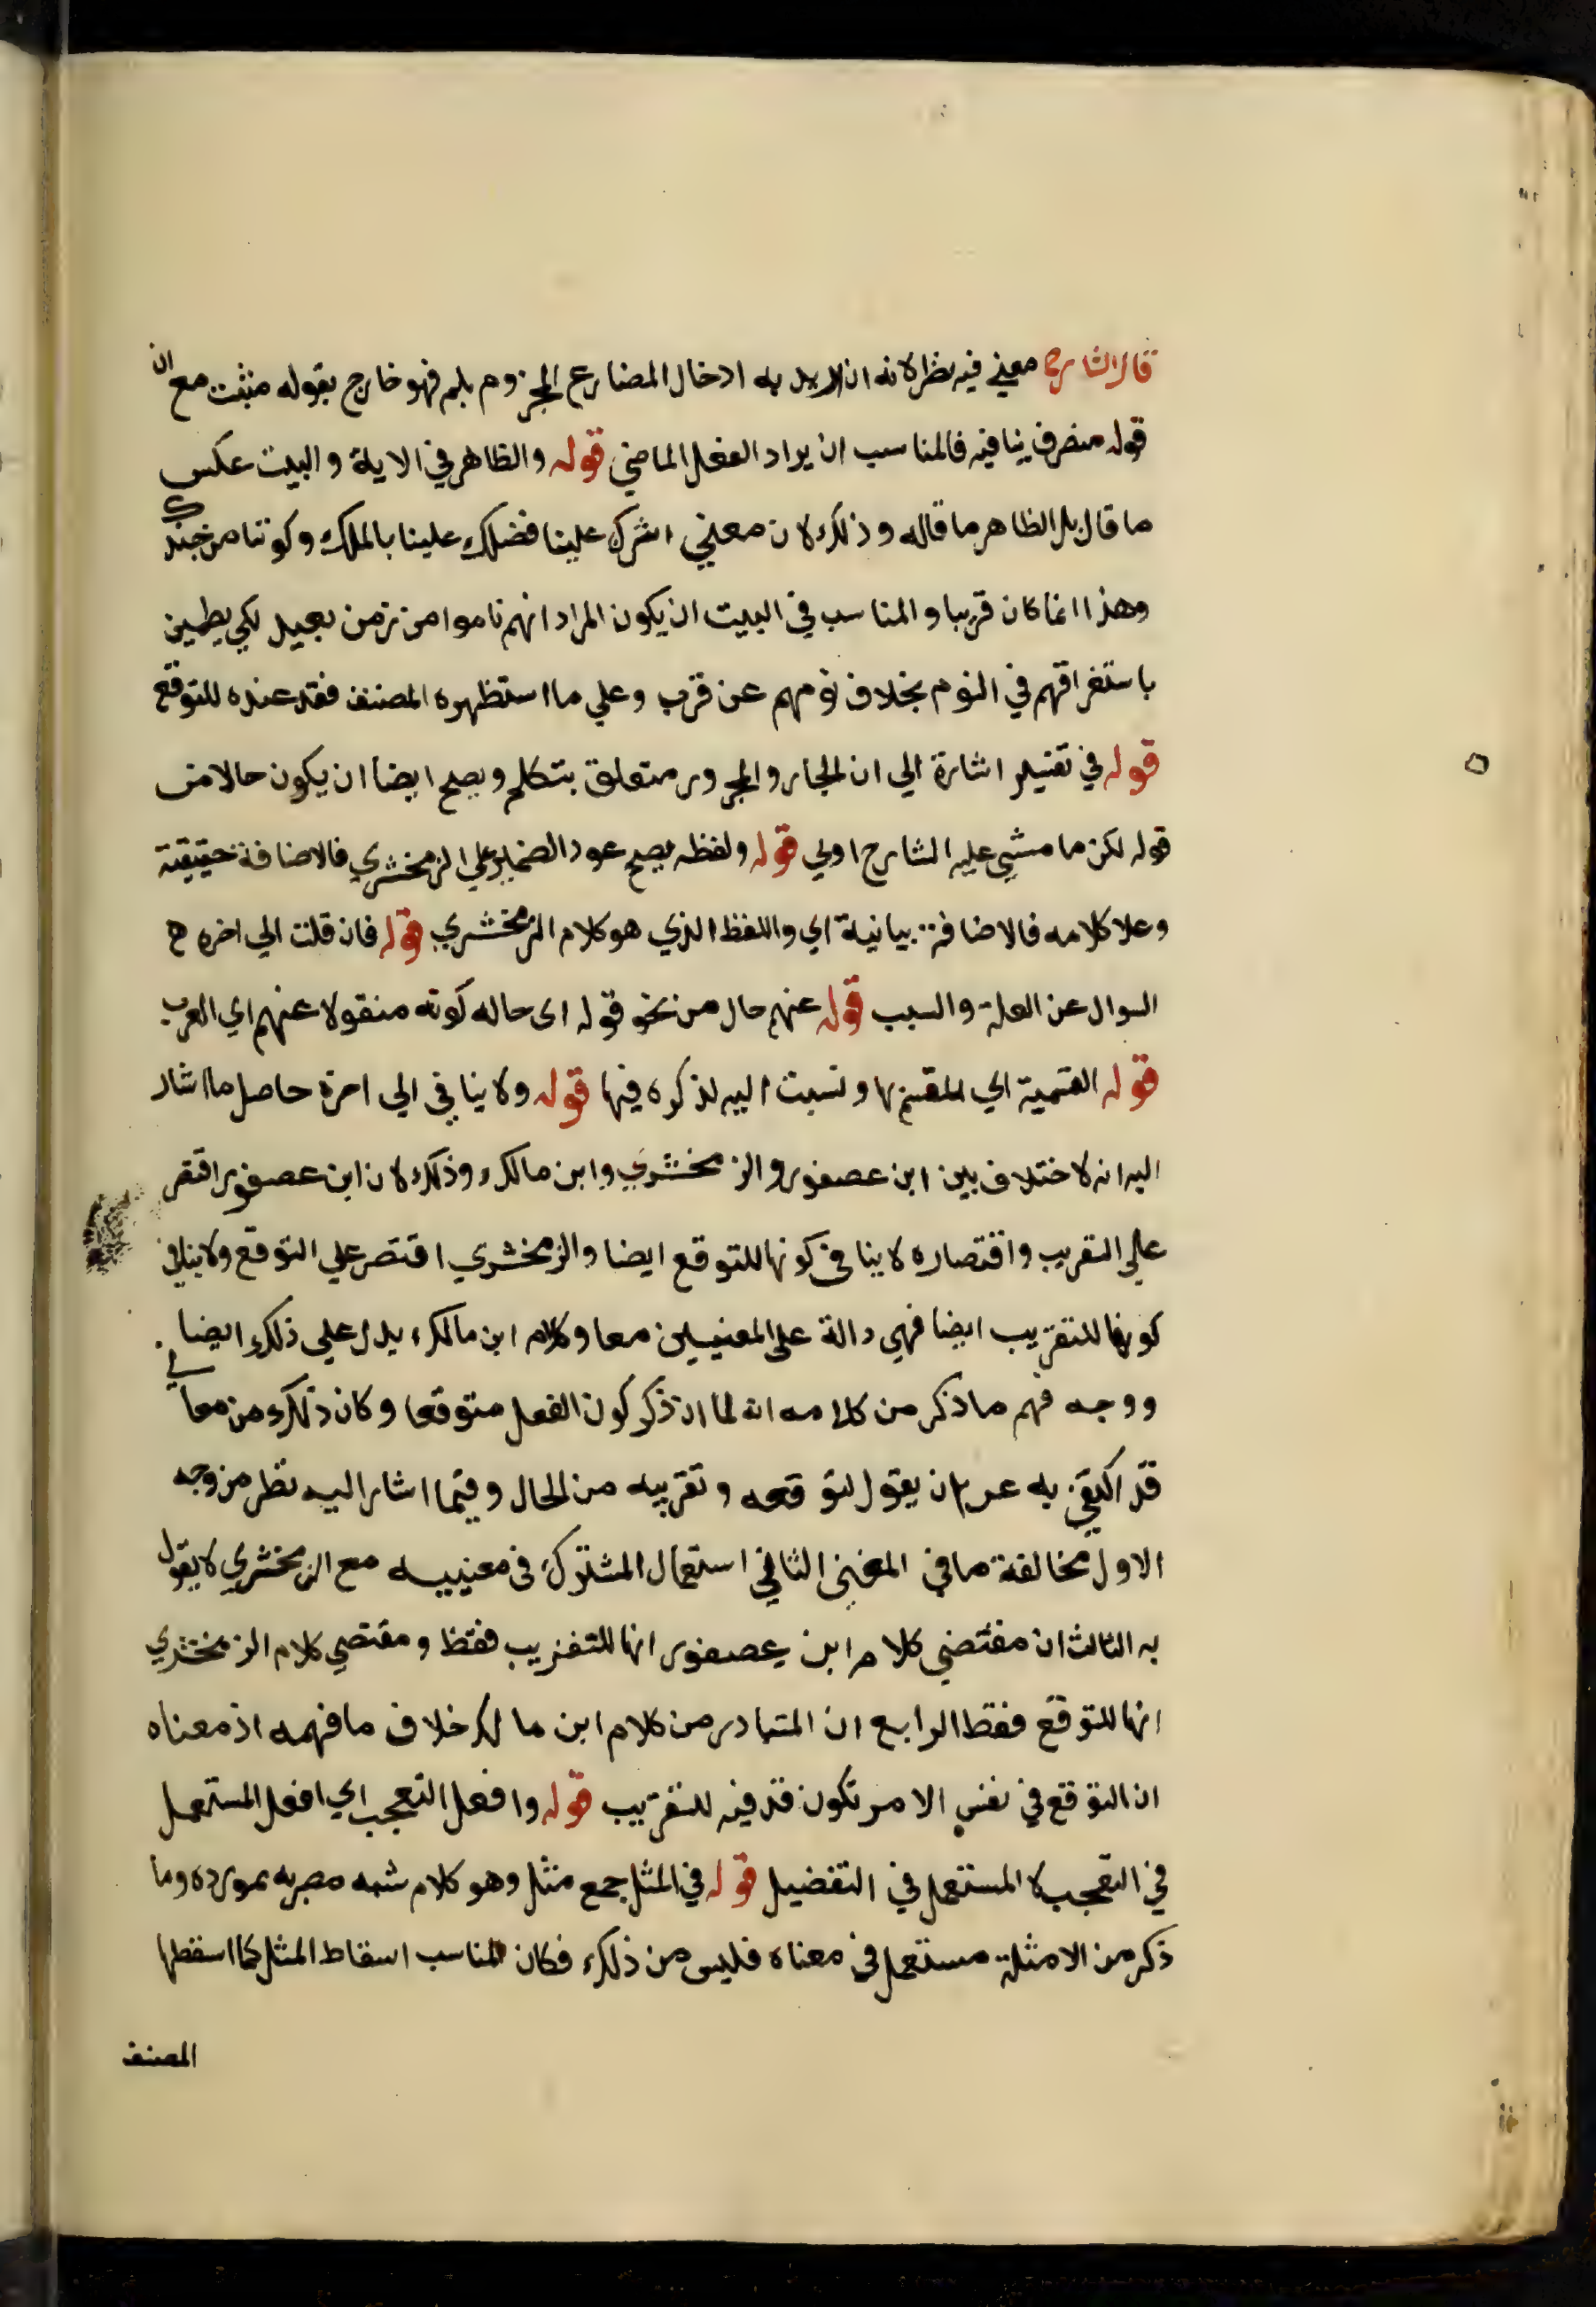 قال الشارح معني فيه نظر لانه ان اريد به ادخال المضارع المجزوم بلم فهو خارج بقوله مثبت مع ان
قوله متصرف ينافيه فالمناسب ان يراد الفعل الماضي قوله والظاهر في الاية والبيت عكس
ما قال بل الظاهر ما قاله وذلك لان معني اثرك علينا فضلك علينا بالملك وكوننا من جندك
وهذا انما كان قريبا والمناسب في البيت ان يكون المراد انهم ناموا من زمن بعيد لكي يطمين
باستغراقهم في النوم بخلاف نومهم عن قرب وعلي ما استظهره المصنف فقد عنده للتوقع
قوله في تفسير اشارة الي ان الجار والمجرور متعلق بتكلم ويصح ايضا ان يكون حالا من
قوله لكن ما مشي عليه الشارح اولي قوله ولفظه يصح عود الضمير علي الزمخشري فالاضافة حقيقية
وعلا كلامه فالاضافة بيانية اي واللفظ الذي هو كلام الزمخشري قوله فان قلت الي اخره ح
السوال عن العلة والسبب قوله عنهم حال من نحو قوله اى حاله كونه منقولا عنهم اي العرب
قوله القسمية اي المقسم بها ونسبت اليه لذكره فيها قوله ولا ينافي الي اخرة حاصل ما اشار
اليه انه لا اختلاف بين ابن عصفور والزمخشري وابن مالك وذلك لان ابن عصفور اقتصر
علي التقريب واقتصاره لا ينافي كونها للتوقع ايضا والزمخشري اقتصر علي التوقع ولا ينافي
كونها للتقريب ايضا فهي دالة على المعنيين معا وكلام ابن مالك يدل علي ذلك ايضا
ووجه فهم ما ذكر من كلامه انه لما ان ذكر كون الفعل متوقعا وكان ذلك من معاني
قد اكتفي به عن ان يقول لتوقعه وتقريبه من الحال وفيما اشار اليه نظر من وجه
الاول مخالفة ما في المغني الثاني استعمال المشترك في معنييه مع الزمخشري لا يقول
به الثالث ان مقتضي كلام ابن عصفور انها للتقريب فقط ومقتضي كلام الزمخشري
انها للتوقع فقط الرابع ان المتبادر من كلام ابن مالك خلاف ما فهمه اذ معناه
ان التوقع في نفس الامر تكون قد فيه للتقريب قوله وافعل التعجب اي افعل المستعمل
في التعجب لا المستعمل في التفضيل قوله في المثل جمع مثل وهو كلام شبه مضربه بمورده وما
ذكر من الامثلة مستعمل في معناه فليس من ذلك فكان المناسب اسقاط المثل كما اسقطها
المصنف